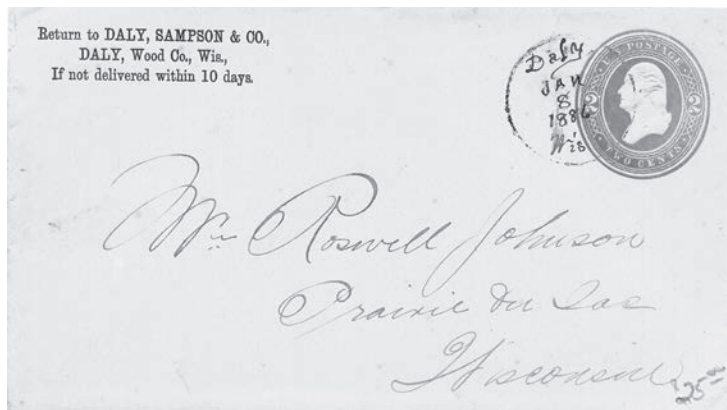 Return to DALY, SAMPSON & CO.,
DALY, Wood Co., Wis.,
If not delivered within 10 days.
Daly
JAN
8
1886
Wis
U.S. POSTAGE
2 2
TWO CENTS
Mr Roswell Johnson
Prairie Du Sac
Wisconsin
25